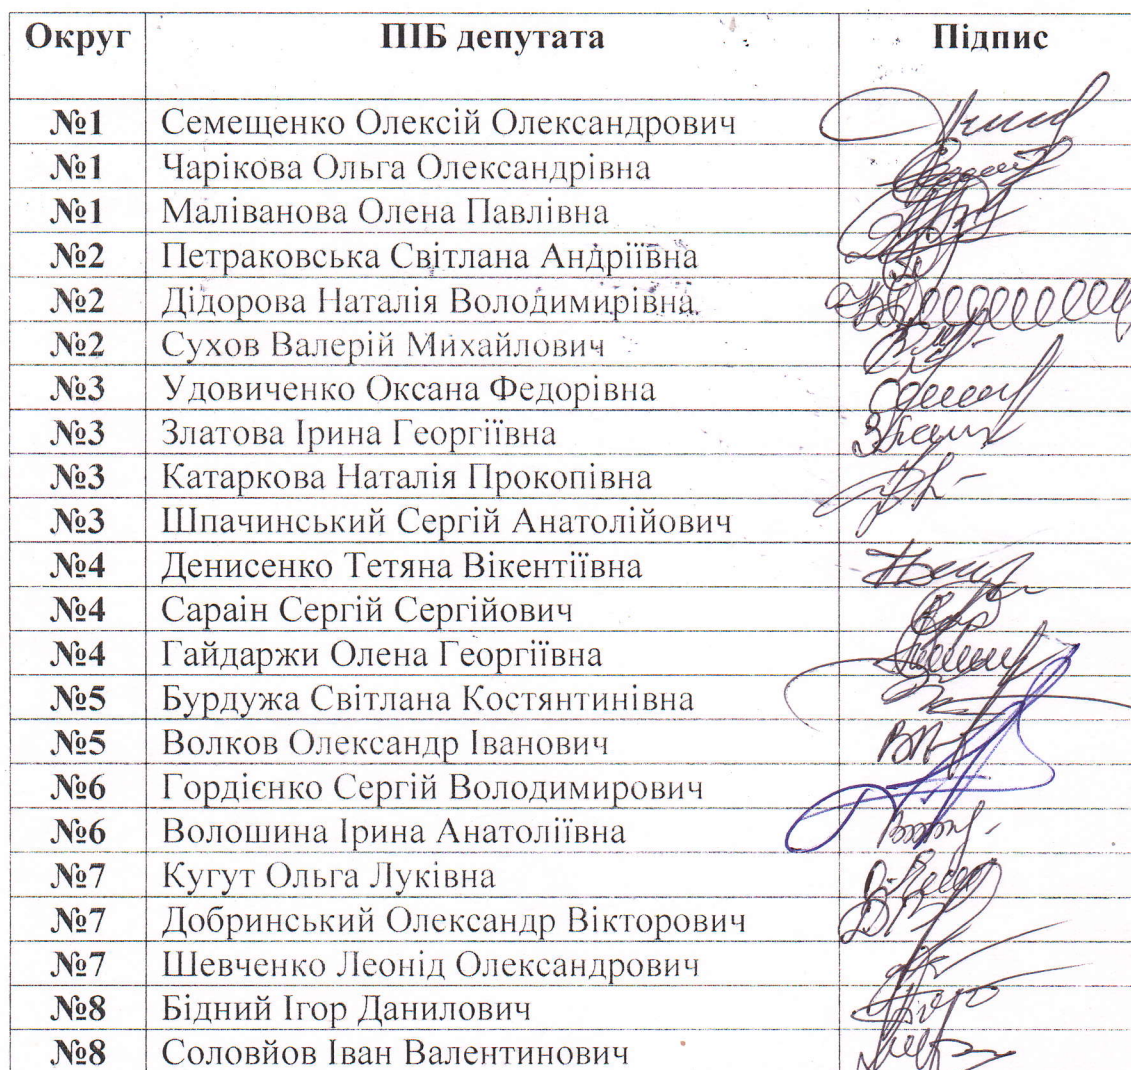 Округ ПІБ депутата Підпис
№1 Семещенко Олексій Олександрович
№1 Чарікова Ольга Олександрівна
№1 Маліванова Олена Павлівна
№2 Петраковська Світлана Андріївна
№2 Дідорова Наталія Володимирівна
№2 Сухов Валерій Михайлович
№3 Удовиченко Оксана Федорівна
№3 Златова Ірина Георгіївна
№3 Катаркова Наталія Прокопівна
№3 Шпачинський Сергій Анатолійович
№4 Денисенко Тетяна Вікентіївна
№4 Сараін Сергій Сергійович
№4 Гайдаржи Олена Георгіївна
№5 Бурдужа Світлана Костянтинівна
№5 Волков Олександр Іванович
№6 Гордієнко Сергій Володимирович
№6 Волошина Ірина Анатоліївна
№7 Кугут Ольга Луківна
№7 Добринський Олександр Вікторович
№7 Шевченко Леонід Олександрович
№8 Бідний Ігор Данилович
№8 Соловйов Іван Валентинович